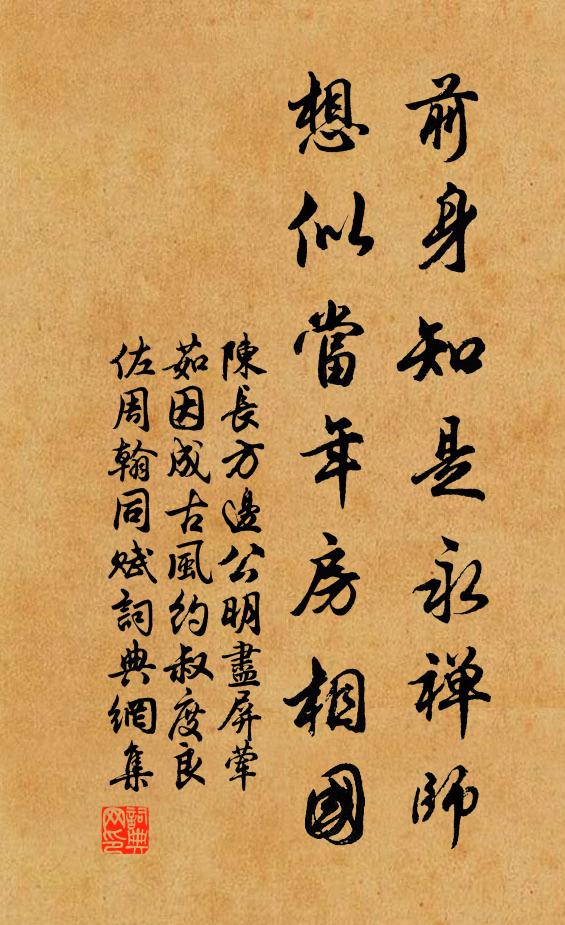 前身知是永禅師
想似當年房相國
陳長方邊公明盡屏葷
茹因成古風約叔度良
佐周翰同賦詞典網集
詞典網印